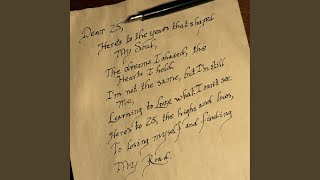 Dear 25,
Here's to the years that shaped
My Soul,
The dreams I chased, the
Hearts I hold.
I'm not the same, but I'm still
Me,
Learning to love what I can't see.
Here's to 25, the highs and lows,
To losing myself and finding
My Road.